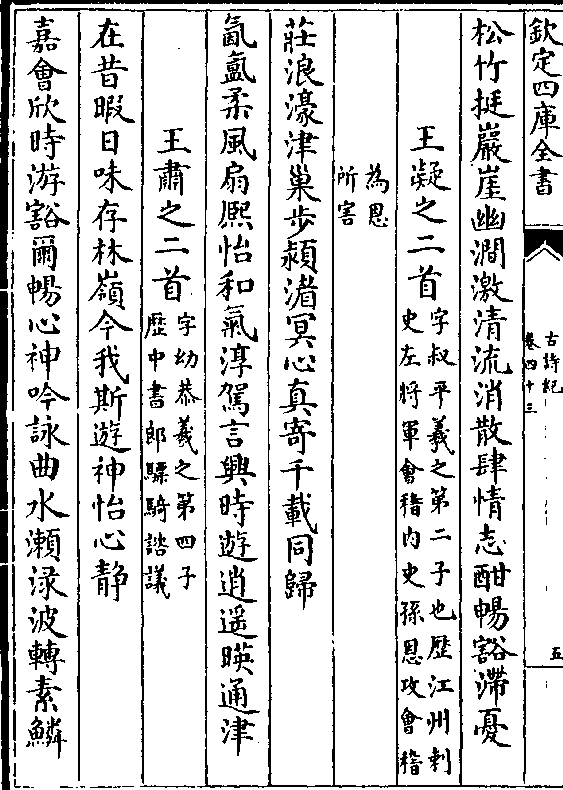 欽定四庫全書
古詩紀
卷四十三
五
松竹挺巖崖幽澗激清流消散肆情志酣暢豁滯憂
王凝之二首
字叔平羲之第二子也歷江州刺
史左將軍會稽內史孫恩攻會稽
為恩
所害
莊浪濠津巢步潁渚冥心真寄千載同歸
氤氳柔風扇熈怡和氣淳駕言興時遊逍遥暎通津
王肅之二首
字幼恭羲之第四子
歴中書郎驃騎諮議
在昔暇日味存林嶺今我斯遊神怡心静
嘉會欣時游豁爾暢心神吟詠曲水瀬渌波轉素鱗